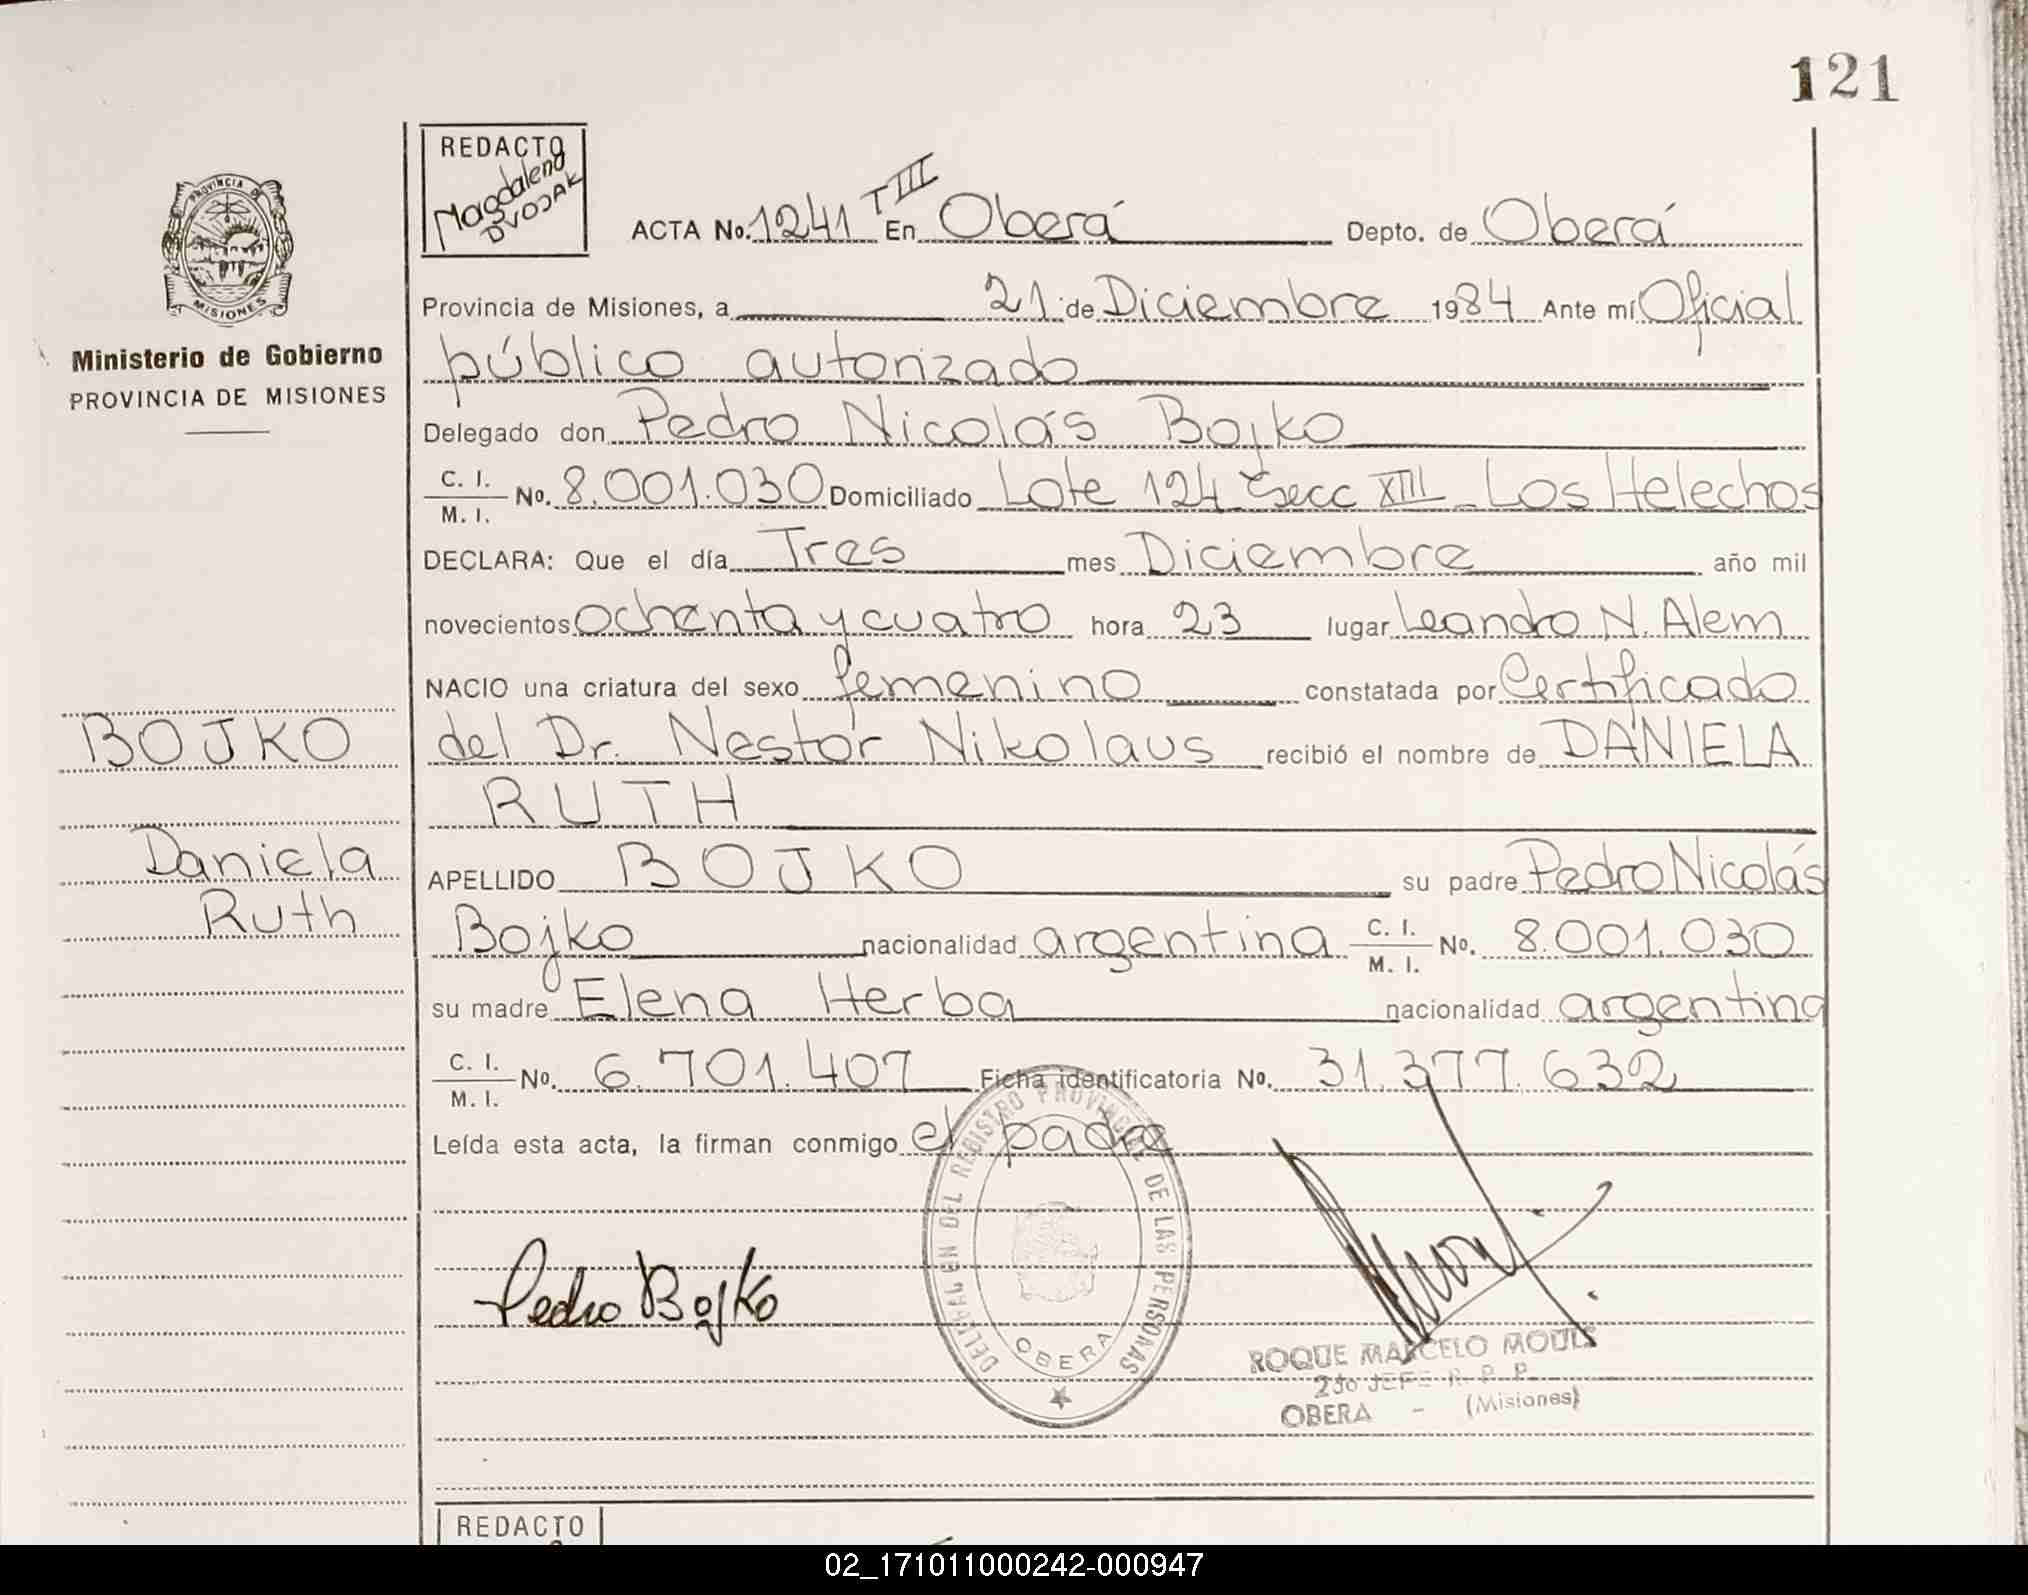 121
REDACTO
Magdalena
DVOJAK
PROVINCIA DE
MISIONES
Ministerio de Gobierno
PROVINCIA DE MISIONES
ACTA No. 1241 T III En Oberá Depto. de Oberá
Provincia de Misiones, a 21 de Diciembre 1984 Ante mí Oficial
público autorizado
Delegado don Pedro Nicolás Bojko
C. I. / M. I. No. 8.001.030 Domiciliado Lote 124 Secc XIII Los Helechos
DECLARA: Que el día Tres mes Diciembre año mil
novecientos ochenta y cuatro hora 23 lugar Leandro N. Alem
NACIO una criatura del sexo femenino constatada por Certificado
del Dr. Nestor Nikolaus recibió el nombre de DANIELA
RUTH
APELLIDO BOJKO su padre Pedro Nicolás
Bojko nacionalidad argentina C. I. / M. I. No. 8.001.030
su madre Elena Herba nacionalidad argentina
C. I. / M. I. No. 6.701.407 Ficha identificatoria No. 31.377.632
Leída esta acta, la firman conmigo el padre
BOJKO
Daniela
Ruth
Pedro Bojko
DELEGACION DEL REGISTRO PROVINCIAL DE LAS PERSONAS
OBERA
ROQUE MARCELO
2do JEFE R. P. P.
OBERA - (Misiones)
REDACTO
02_171011000242-000947